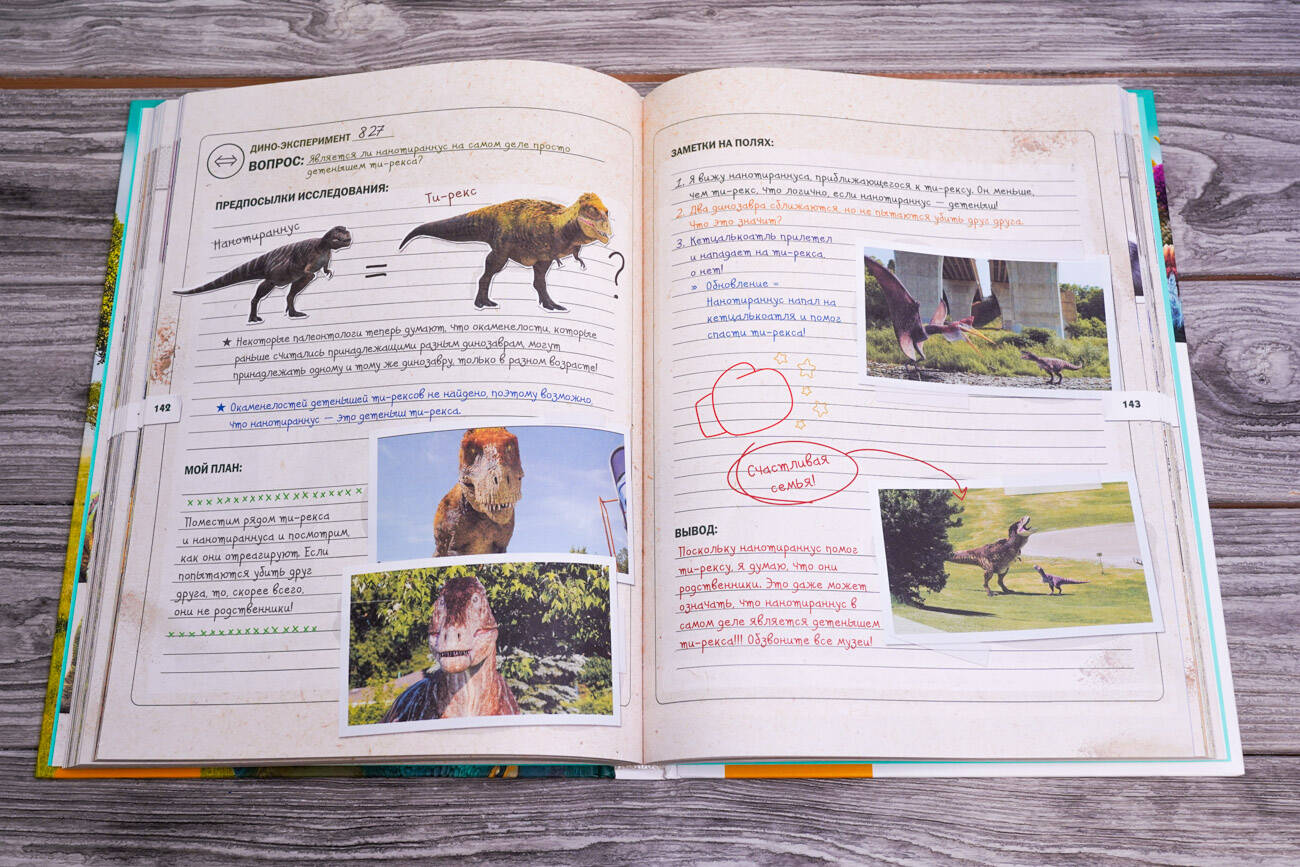 ДИНО-ЭКСПЕРИМЕНТ 827
ВОПРОС: Является ли нанотираннус на самом деле просто
детенышем ти-рекса?
ПРЕДПОСЫЛКИ ИССЛЕДОВАНИЯ:
Ти-рекс
Нанотираннус
= ?
★ Некоторые палеонтологи теперь думают, что окаменелости, которые
раньше считались принадлежащими разным динозаврам, могут
принадлежать одному и тому же динозавру, только в разном возрасте!
★ Окаменелостей детенышей ти-рексов не найдено, поэтому возможно,
что нанотираннус — это детеныш ти-рекса.
142
МОЙ ПЛАН:
Поместим рядом ти-рекса
и нанотираннуса и посмотрим,
как они отреагируют. Если
попытаются убить друг
друга, то, скорее всего,
они не родственники!
ЗАМЕТКИ НА ПОЛЯХ:
1. Я вижу нанотираннуса, приближающегося к ти-рексу. Он меньше,
чем ти-рекс, что логично, если нанотираннус — детеныш!
2. Два динозавра сближаются, но не пытаются убить друг друга.
Что это значит?
3. Кетцалькоатль прилетел
и нападает на ти-рекса,
о нет!
» Обновление =
Нанотираннус напал на
кетцалькоатля и помог
спасти ти-рекса!
143
Счастливая
семья!
ВЫВОД:
Поскольку нанотираннус помог
ти-рексу, я думаю, что они
родственники. Это даже может
означать, что нанотираннус в
самом деле является детенышем
ти-рекса!!! Обзвоните все музеи!